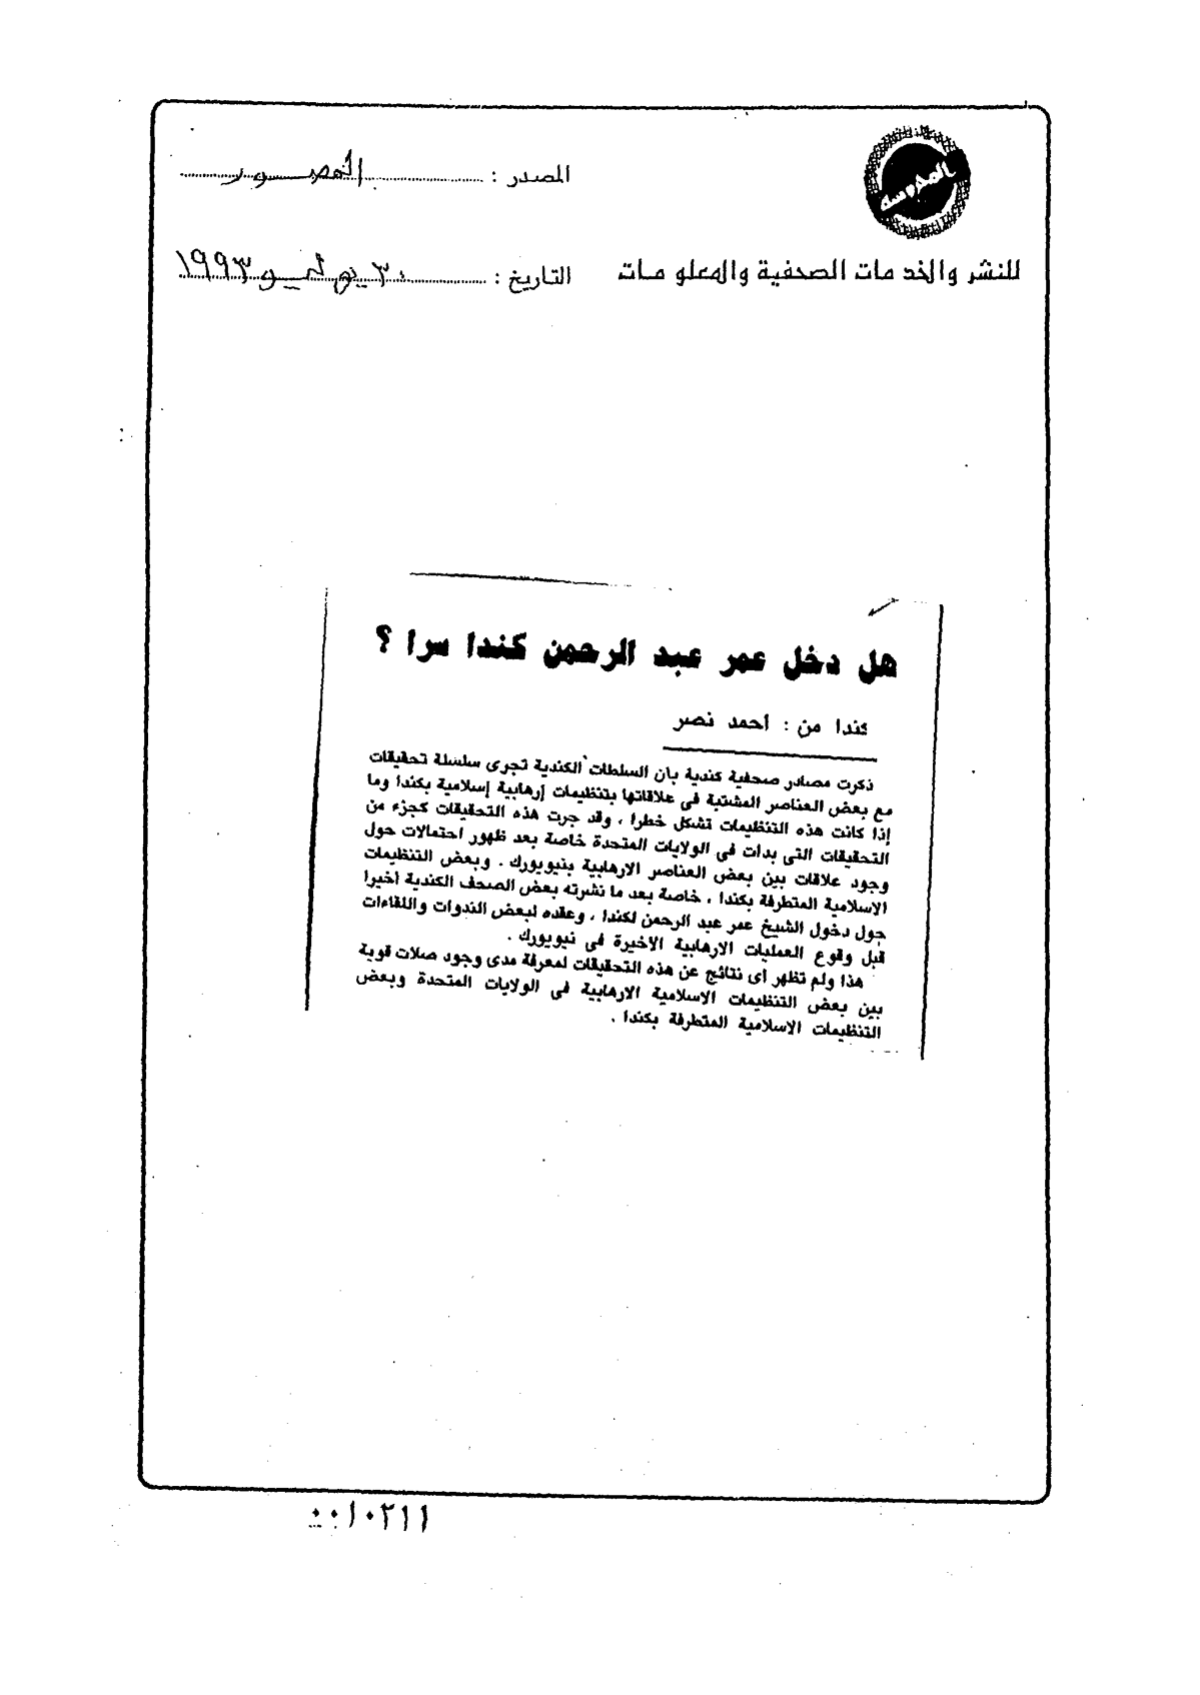 المصدر : المصور
للنشر والخدمات الصحفية والمعلومات
التاريخ : ٣٠ يوليو ١٩٩٣
هل دخل عمر عبد الرحمن كندا سرا ؟
كندا من : احمد نصر
ذكرت مصادر صحفية كندية بان السلطات الكندية تجرى سلسلة تحقيقات
مع بعض العناصر المشتبة فى علاقاتها بتنظيمات إرهابية إسلامية بكندا وما
إذا كانت هذه التنظيمات تشكل خطرا ، وقد جرت هذه التحقيقات كجزء من
التحقيقات التى بدات فى الولايات المتحدة خاصة بعد ظهور احتمالات حول
وجود علاقات بين بعض العناصر الارهابية بنيويورك . وبعض التنظيمات
الاسلامية المتطرفة بكندا ، خاصة بعد ما نشرته بعض الصحف الكندية اخيرا
حول دخول الشيخ عمر عبد الرحمن لكندا ، وعقده لبعض الندوات واللقاءات
قبل وقوع العمليات الارهابية الاخيرة فى نيويورك .
هذا ولم تظهر اى نتائج عن هذه التحقيقات لمعرفة مدى وجود صلات قوية
بين بعض التنظيمات الاسلامية الارهابية فى الولايات المتحدة وبعض
التنظيمات الاسلامية المتطرفة بكندا .
٠٠١٠٢١١